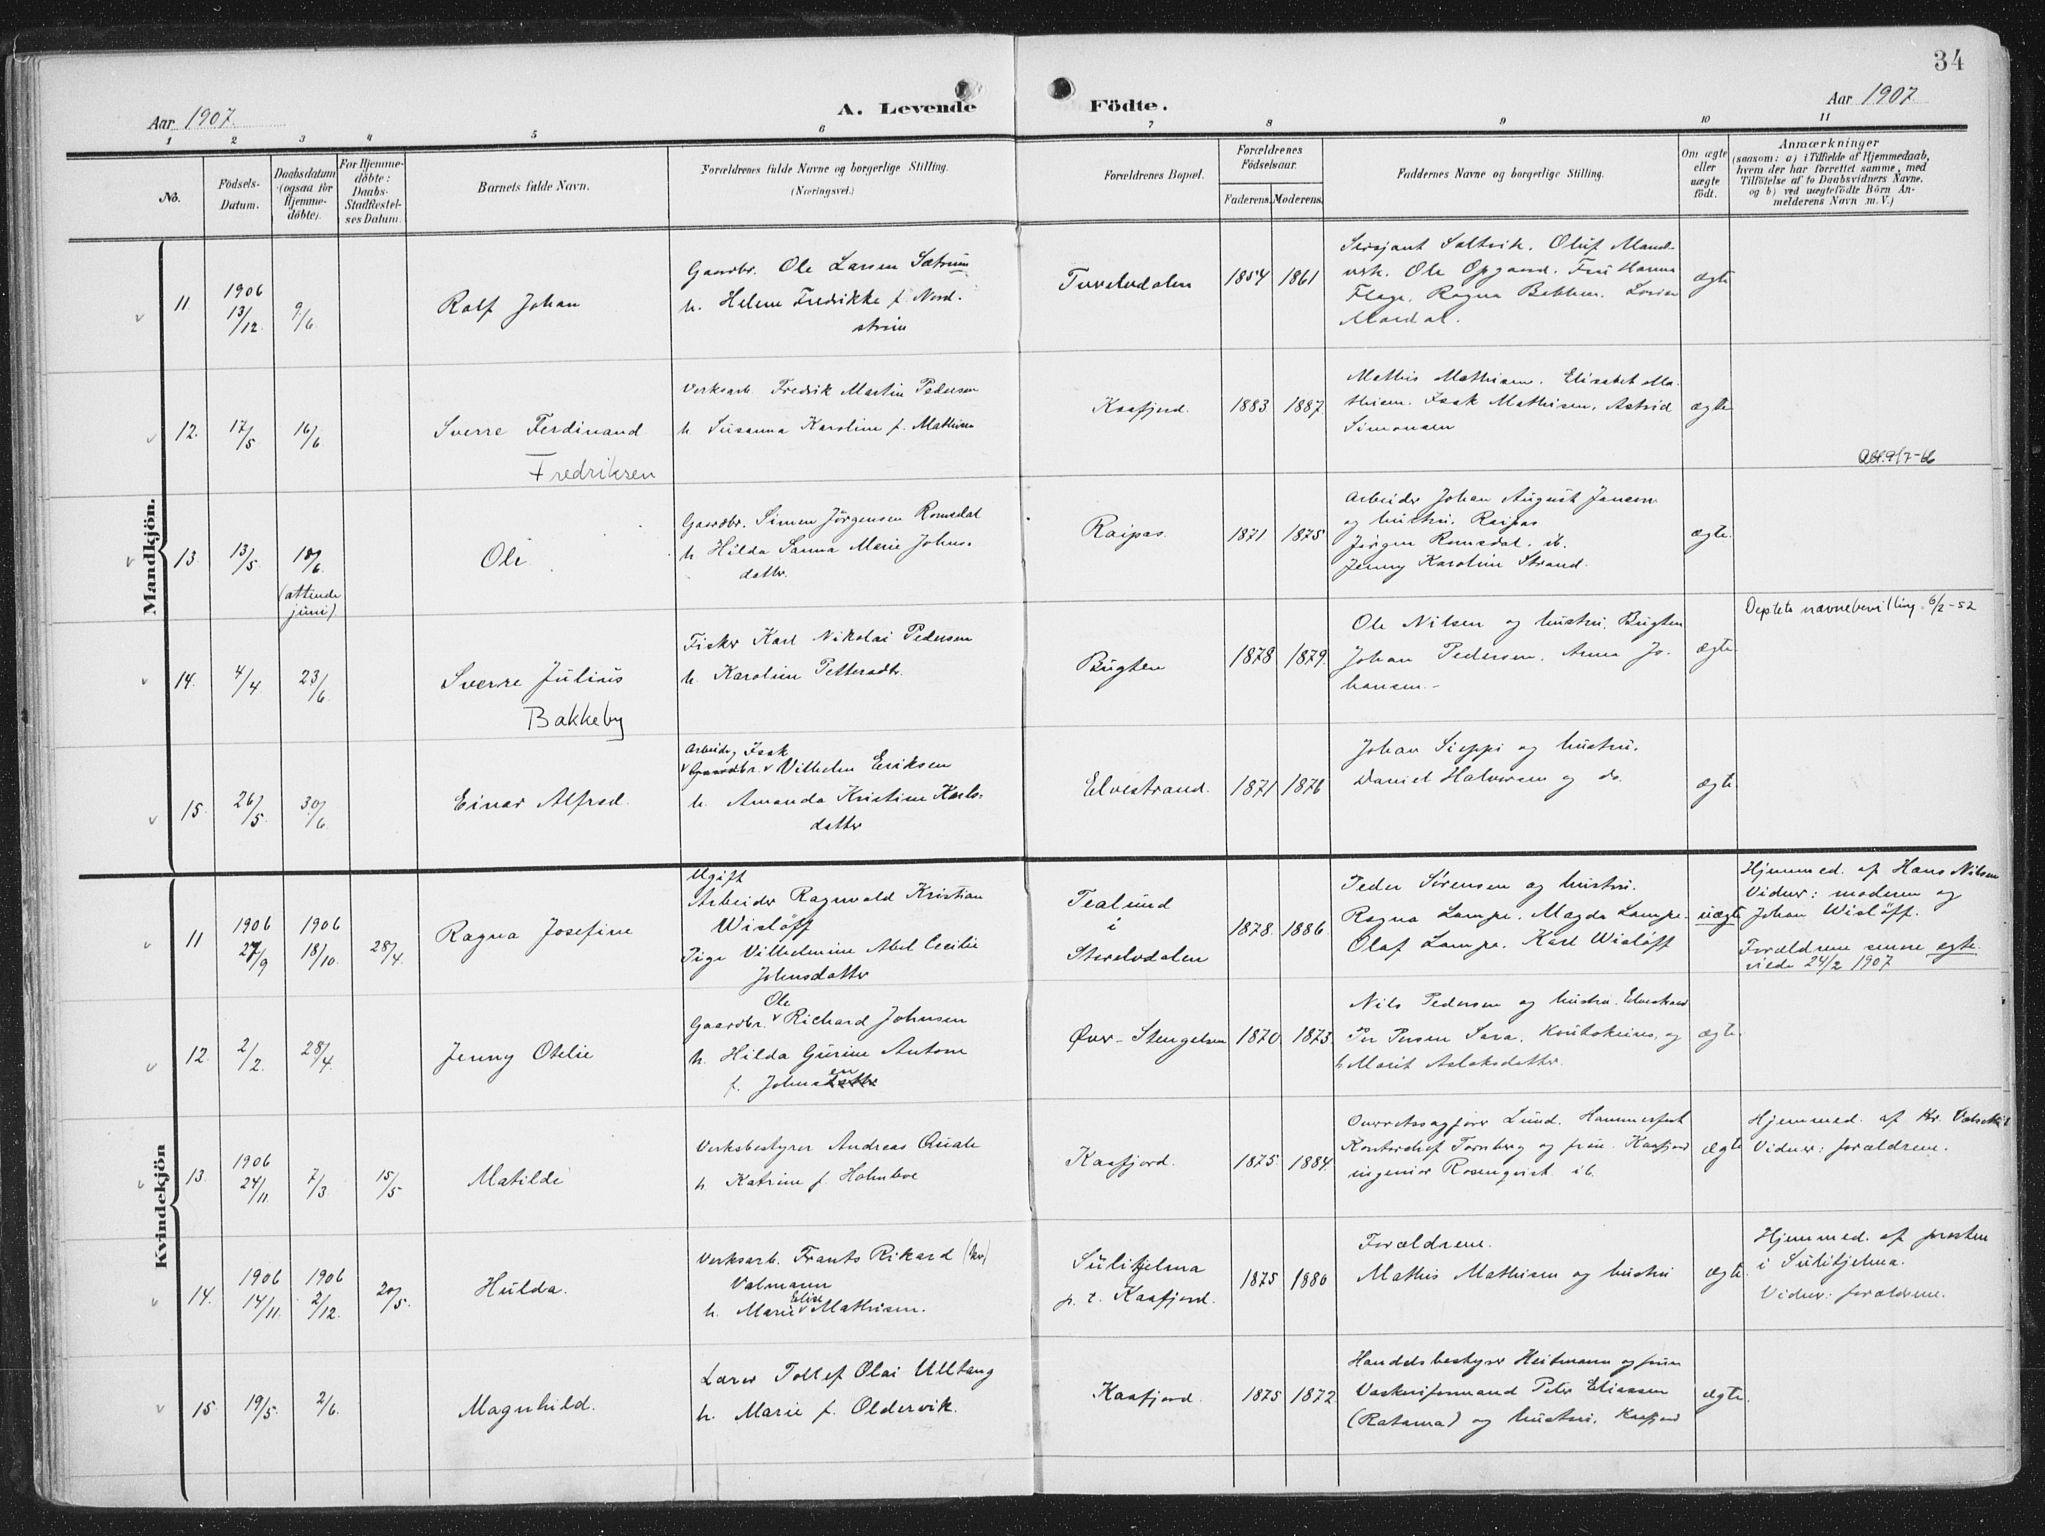 34
Aar 1907.
A. Levende
Födte.
Aar 1907
1 2 3 4 5 6 7 8 9 10 11
No.
Födsels-
Datum.
Daabsdatum
(ogsaa for
Hjemme-
döbte).
For Hjemme-
döbte:
Daabs-
Stadfæstel-
ses Datum.
Barnets fulde Navn.
Forældrenes fulde Navne og borgerlige Stilling.
(Næringsvei.)
Forældrenes Bopæl.
Forældrenes
Födselsaar.
Faderens.
Moderens.
Faddernes Navne og borgerlige Stilling.
Om ægte
eller
uægte
födt.
Anmærkninger
(saasom: a) i Tilfælde af Hjemmedaab,
hvem der har forrettet samme, med
Tilföielse af to Daabsvidners Navne.
og b) ved uægtefödte Börn An-
melderens Navn m. V.)
Mandkjön.
11
1906
13/12.
9/6
Rolf Johan
Gaardbr. Ole Larsen Sætrum
h. Helene Fredrikke f. Nord-
strøm
1854
1861
Sersjant Saltvik. Oluf Mand-
verk. Ole Opgaard. Fru Hanna
Flage. Ragna Bekken.
ægte
12.
17/5
16/6
Sverre Ferdinand
Fredriksen
Verksarb. Fredrik Martin Pedersen
h. Susanna Karoline f. Mathisen
Kaafjord.
1883
1887
Mathis Mathisen. Elisabet Ma-
thisen. Isak Mathisen, Astrid
Simonsen
ægte
13.
13/5
18/6
(attende
juni)
Ole
Gaardbr. Simon Jørgensen Romsdal
h. Hilda Sanna Marie Johns-
datter.
Raipas.
1871
1875
Arbeider Johan August Jensen
og hustru. Raipas
Jørgen Romsdal. ib.
Jenny Karoline Strand.
ægte.
14.
4/4
23/6
Sverre Julius
Bakkeby
Fisker Karl Nikolai Pedersen
h. Karoline Pettersdtr.
Bugten
1878
1879.
Ole Nilsen og hustru. Bugten
Johan Pedersen. Anna Jo-
hansen. -
ægte
Deptets navnebevilling 6/2-52
15.
26/5
30/6
Einar Alfred.
Arbeider Isak
Gaardbr. Vilhelm Eriksen
h. Amanda Kristine Karls-
datter
Elvestrand.
1871
1876
Johan Sieppi og hustru.
Daniel Halvorsen og do.
ægte.
Kvindekjön
11
1906
27/9
1906
18/10.
28/4.
Ragna Josefine
Ugift
Arbeider Ragnvald Kristian
Wisløff
Pige Vilhelmine Abel Cecilie
Johnsdatter
i
Storelvdalen
1878.
1886.
Peder Sørensen og hustru.
Ragna Lampe. Magda Lampe.
Olaf Lampe. Karl Wisløff
uægte
Hjemmed. af Hans Nilsen
Vidner: moderen og
Johan Wisløff.
Forældrene senere egte-
viede 24/2 1907
12.
2/2.
28/4
Jenny Otelie
Ole
Gaardbr. Richard Johnsen
h. Hilda Gurine Antone
f. Johnsen
Øvre-Stengelsen
1870.
1873.
Nils Pedersen og hustru. Elvestrand
Per Persen Sara, Koutokeino, og
h. Marit Aslaksdatter.
ægte.
13.
1906
24/11.
7/3
15/5
Matilde
Verksbestyrer Andreas Quale
h. Katrine f. Holmboe
Kaafjord.
1875.
1884.
Overretssagfører Lund. Hammerfest
Kontorchef Tornberg og frue. Kaafjord
ingeniør Rosenqvist ib.
ægte
Hjemmed. af
Vidner: forældrene.
14.
1906
14/11.
1906
2/12.
20/5.
Hulda.
Verksarb. Frants Rikard
Valmann
h. Marie Elise Mathisen.
Sulitjelma
p. t. Kaafjord.
1875
1886
Forældrene.
Mathis Mathisen og hustru
ægte
Hjemmed. af presten
i Sulitjelma.
Vidner: forældrene.
15.
19/5.
2/6.
Magnhild.
Lærer Tollef Olai Ulltang
h. Marie f. Oldervik.
Kaafjord.
1875
1872.
Handelsbestyrer Heitmann og frue
Vaskeriformand Peter Eliassen
(Ratama) og hustru. Kaafjord
ægte.